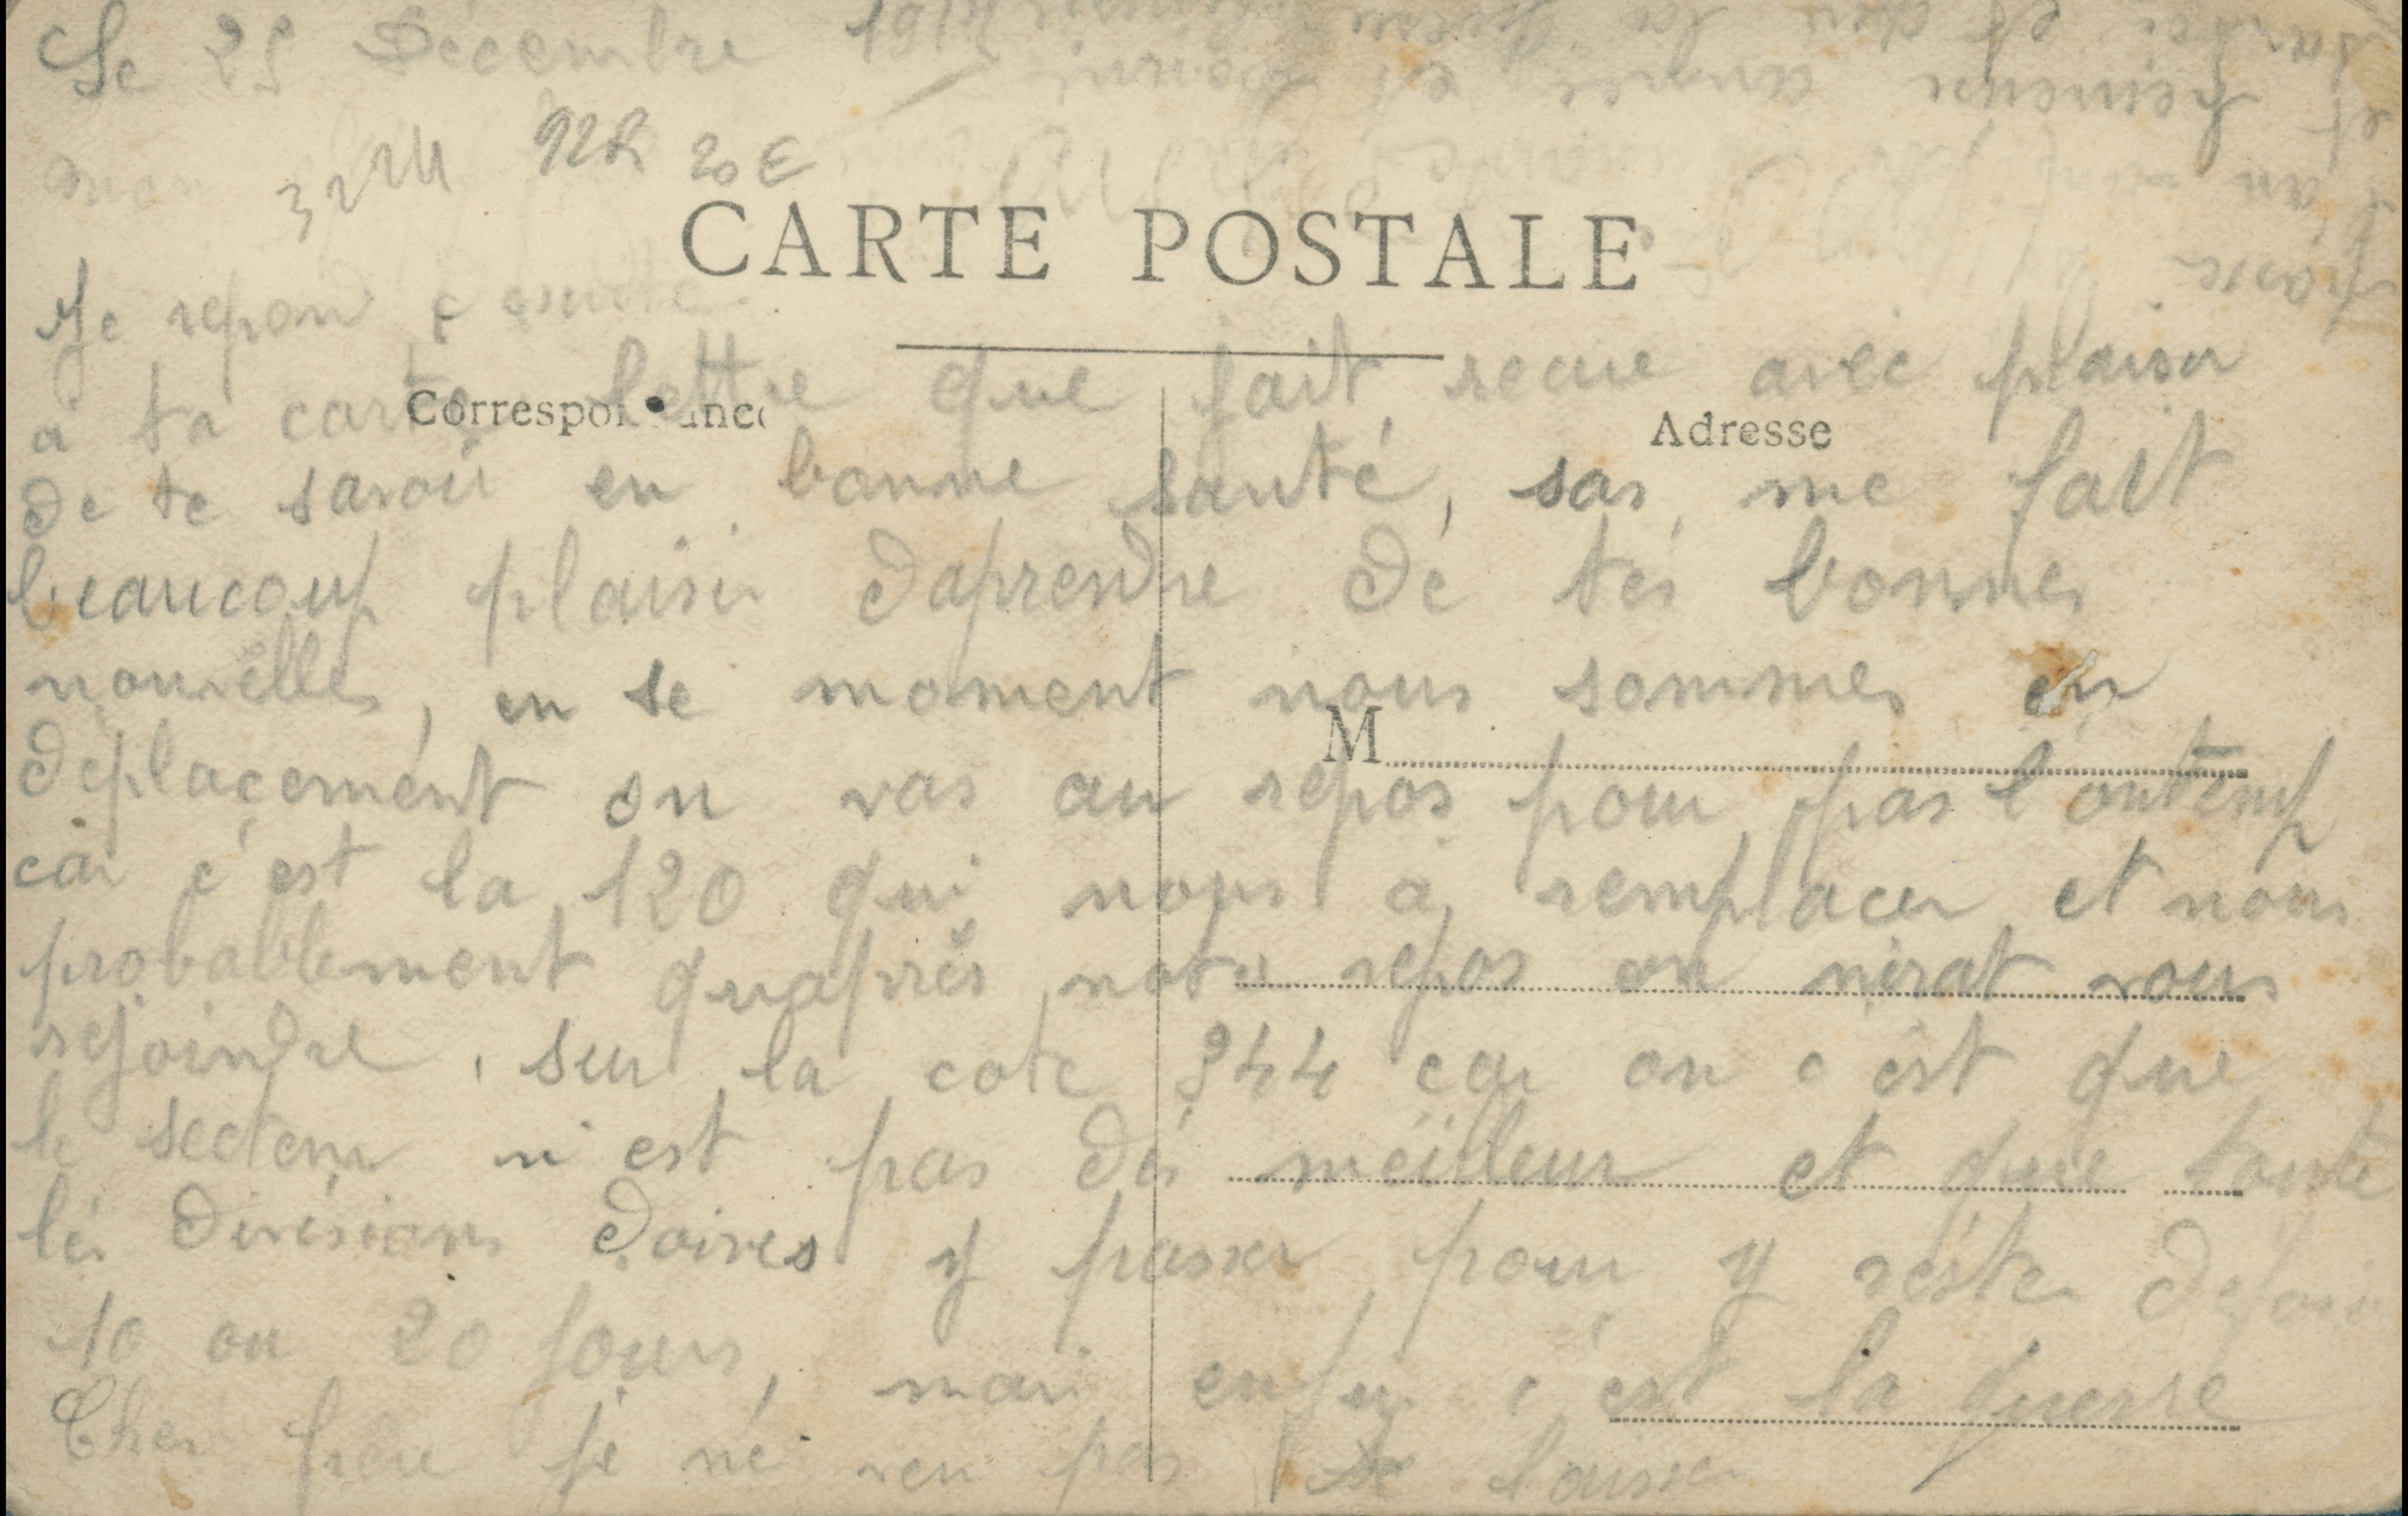 Le 25 Décembre 191
92R 20 E
CARTE POSTALE
Je repond
à ta carte lettre que jait recue avec plaisir
Correspondance
Adresse
de te savoir en bonne santé, sas me fait
beaucoup plaisir daprendre de tes bonnes
nouvelles, en se moment nous sommes en
M
déplacement on vas au repos pour pas lontemp
car c'est la 120 qui nous a remplacer et nous
probablement quaprès notre repos on nirat vous
rejoindre, sur la cote 344 car on c'est que
le secteur n'est pas des meilleur et que toute
les divisions doives y passer pour y rester
10 ou 20 jours, mais enfin c'est la guerre
Cher frere je ne veu pas te laisser
passer
et heureuse année et
santé et